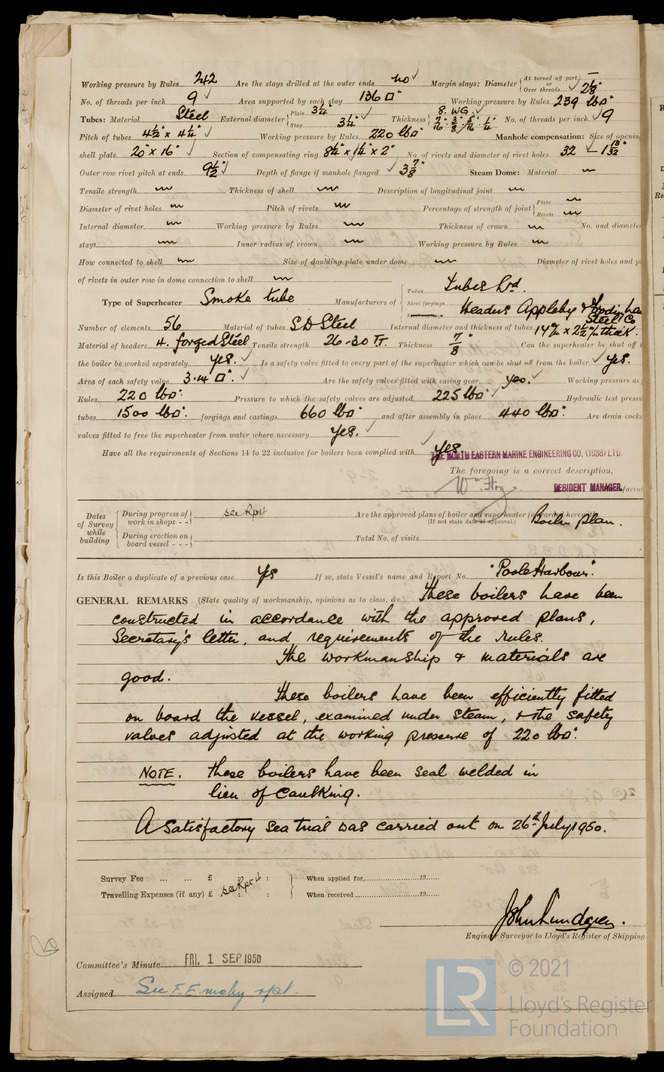 Working pressure by Rules 242 Are the stays drilled at the outer ends no Margin stays: Diameter { At turned off part, or Over threads 2⅛"
No. of threads per inch 9 Area supported by each stay 136 □" Working pressure by Rules 239 lbs
Tubes: Material Steel External diameter { Plain 3¼ Stay 3¼ Thickness { 8. WG. No. of threads per inch 9
Pitch of tubes 4½" x 4¼" Working pressure by Rules 220 lbs Manhole compensation: Size of opening
shell plate 20" x 16" Section of compensating ring No. of rivets and diameter of rivet holes 32
Outer row rivet pitch at ends 9½" Depth of flange if manhole flanged 3⅞" Steam Dome: Material
Tensile strength Thickness of shell Description of longitudinal joint
Diameter of rivet holes Pitch of rivets Percentage of strength of joint { Plate Rivets
Internal diameter Working pressure by Rules Thickness of crown No. and diameter
stays Inner radius of crown Working pressure by Rules
How connected to shell Size of doubling plate under dome Diameter of rivet holes and p
of rivets in outer row in dome connection to shell
Type of Superheater Smoke tube Manufacturers of { Tubes Tubes Ltd. Steel forgings Headers Appleby & Steel Co
Number of elements 56 Material of tubes S D Steel Internal diameter and thickness of tubes
Material of headers forged Steel Tensile strength 26-30 Tr. Thickness ⅞" Can the superheater be shut off a
the boiler be worked separately yes. Is a safety valve fitted to every part of the superheater which can be shut off from the boiler yes.
Area of each safety valve 3.14 □" Are the safety valves fitted with easing gear yes. Working pressure as
Rules 220 lbs. Pressure to which the safety valves are adjusted 225 lbs Hydraulic test pressure
tubes 1500 lbs. forgings and castings 660 lbs. and after assembly in place 440 lbs. Are drain cocks
valves fitted to free the superheater from water where necessary yes.
Have all the requirements of Sections 14 to 22 inclusive for boilers been complied with yes
THE NORTH EASTERN MARINE ENGINEERING CO. (1938) LTD.
The foregoing is a correct description,
RESIDENT MANAGER.
Dates of Survey while building { During progress of work in shops - - see Rpt Are the approved plans of boiler and superheater forwarded herewith (If not state date of approval.) Boiler plan.
During erection on board vessel - - - Total No. of visits
Is this Boiler a duplicate of a previous case Yes If so, state Vessel's name and Report No. "Poole Harbour".
GENERAL REMARKS (State quality of workmanship, opinions as to class, &c.) These boilers have been
constructed in accordance with the approved plans,
Secretary's letter, and requirements of the rules.
The workmanship & materials are
good.
These boilers have been efficiently fitted
on board the vessel, examined under steam, & the safety
valves adjusted at the working pressure of 220 lbs.
NOTE. These boilers have been seal welded in
lieu of caulking.
A satisfactory sea trial was carried out on 26th July 1950.
Survey Fee ... ... £ : : When applied for 19
Travelling Expenses (if any) £ see Rpt : : When received 19
John Lundgren.
Engineer Surveyor to Lloyd's Register of Shipping
Committee's Minute FRI. 1 SEP 1950
Assigned See F.E. mchy rpt.
LR © 2021
Lloyd's Register
Foundation